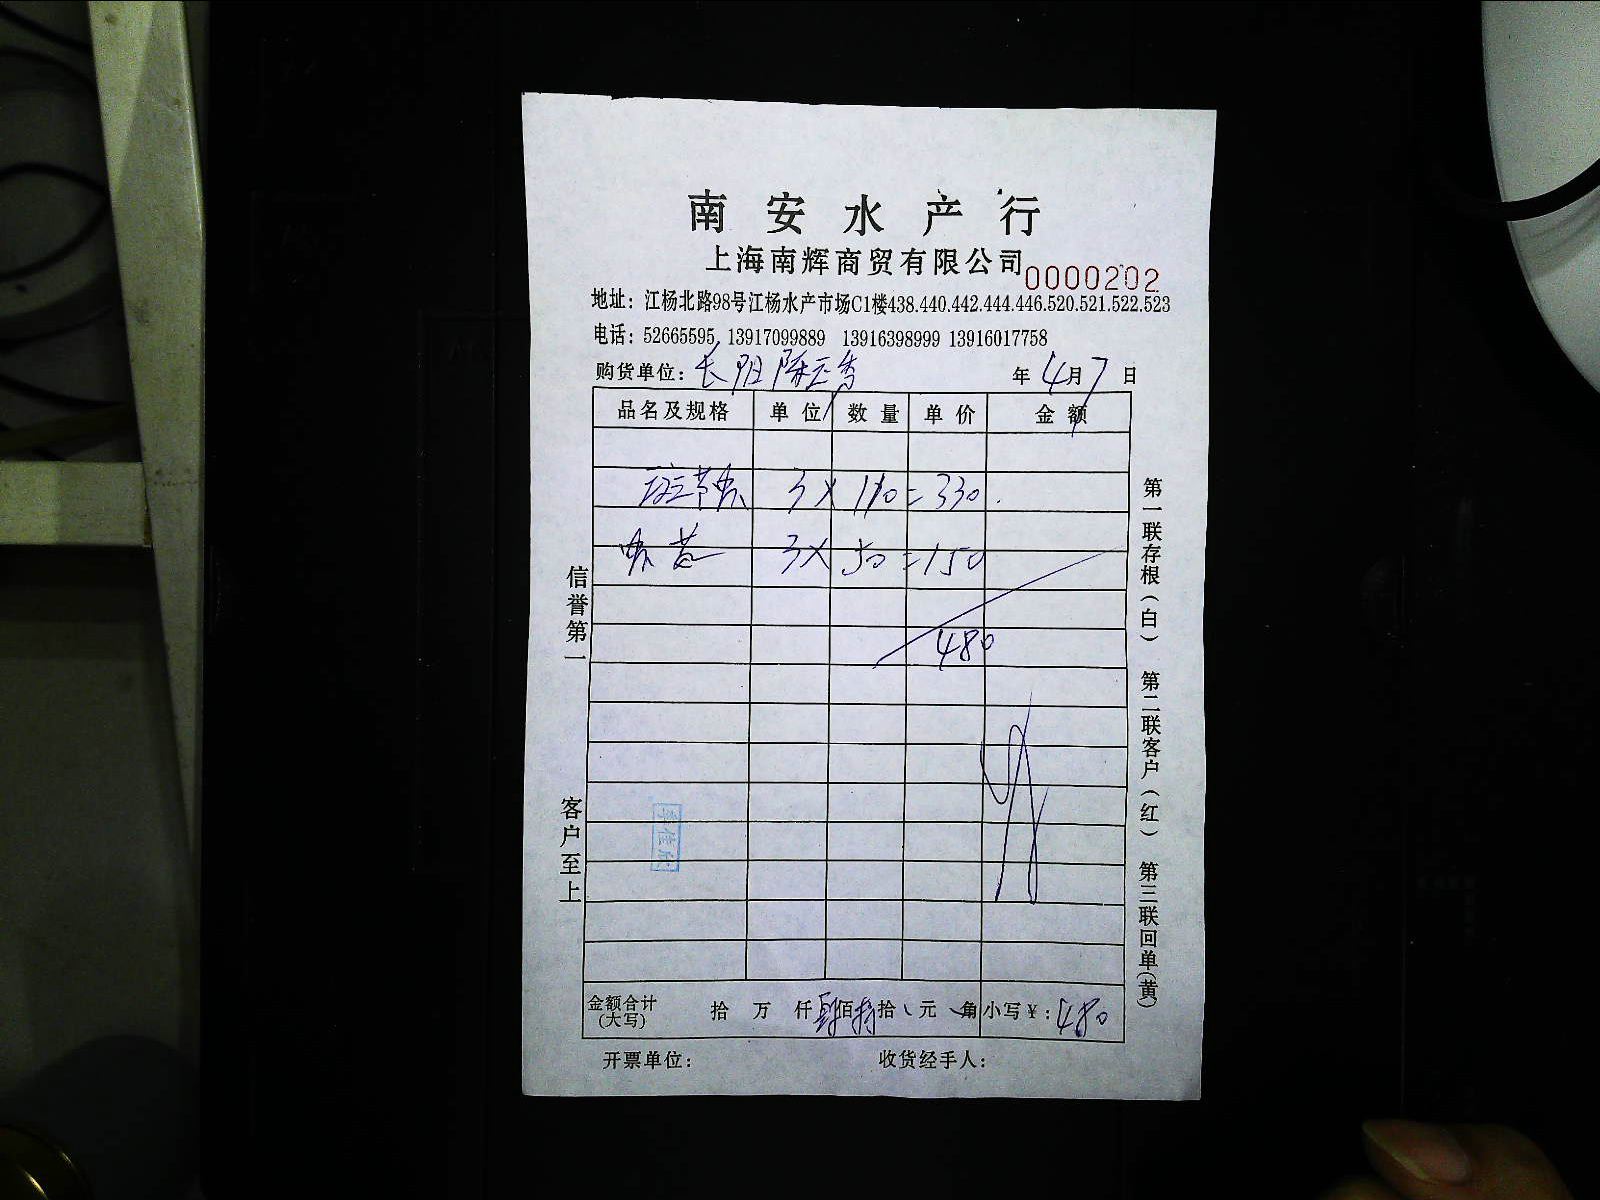 南安水产行
上海南辉商贸有限公司
0000202
地址：江杨北路98号江杨水产市场C1楼438.440.442.444.446.520.521.522.523
电话：52665595 13917099889 13916398999 13916017758
购货单位：长阳陈玉香 年4月7日
品名及规格 单位 数量 单价 金额
斑节虾 3×110=330.
虾黄 3×50=150
480
信誉第一
客户至上
李佳欣
第一联存根（白） 第二联客户（红） 第三联回单（黄）
金额合计（大写） 拾 万 仟肆佰捌拾 元 角 小写￥：480
开票单位： 收货经手人：